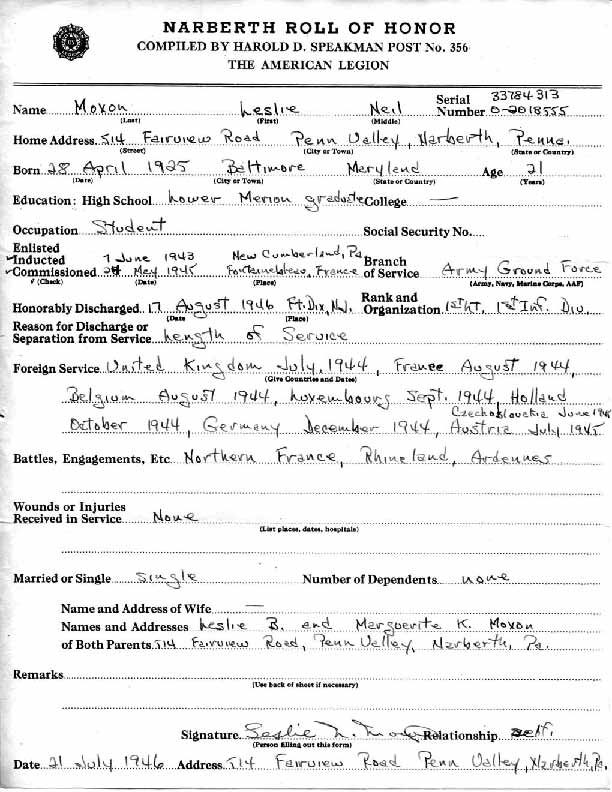 NARBERTH ROLL OF HONOR
COMPILED BY HAROLD D. SPEAKMAN POST No. 356
THE AMERICAN LEGION
Name Moxon Leslie Neil Serial Number 33784313 O-2018555
(Last) (First) (Middle)
Home Address 514 Fairview Road Penn Valley, Narberth, Penna.
(Street) (City or Town) (State or Country)
Born 28 April 1925 Baltimore Maryland Age 21
(Date) (City or Town) (State or Country) (Years)
Education: High School Lower Merion graduate College —
Occupation Student Social Security No.
Enlisted
✓Inducted 7 June 1943 New Cumberland, Pa Branch
✓Commissioned 24 May 1945 Fontainebleau, France of Service Army Ground Force
(Check) (Date) (Place) (Army, Navy, Marine Corps, AAF)
Honorably Discharged 17 August 1946 Ft. Dix, N.J. Rank and Organization 1st Lt. 1st Inf. Div.
(Date (Place)
Reason for Discharge or
Separation from Service Length of Service
Foreign Service United Kingdom July, 1944, France August 1944,
(Give Countries and Dates)
Belgium August 1944, Luxembourg Sept. 1944, Holland
Czechoslovakia June 1945
October 1944, Germany December 1944, Austria July 1945
Battles, Engagements, Etc. Northern France, Rhineland, Ardennes
Wounds or Injuries
Received in Service None
(List places, dates, hospitals)
Married or Single single Number of Dependents none
Name and Address of Wife —
Names and Addresses Leslie B. and Marguerite K. Moxon
of Both Parents 514 Fairview Road, Penn Valley, Narberth, Pa.
Remarks
(Use back of sheet if necessary)
Signature Leslie N. Moxon Relationship self.
(Person filling out this form)
Date 21 July 1946 Address 514 Fairview Road Penn Valley, Narberth, Pa.